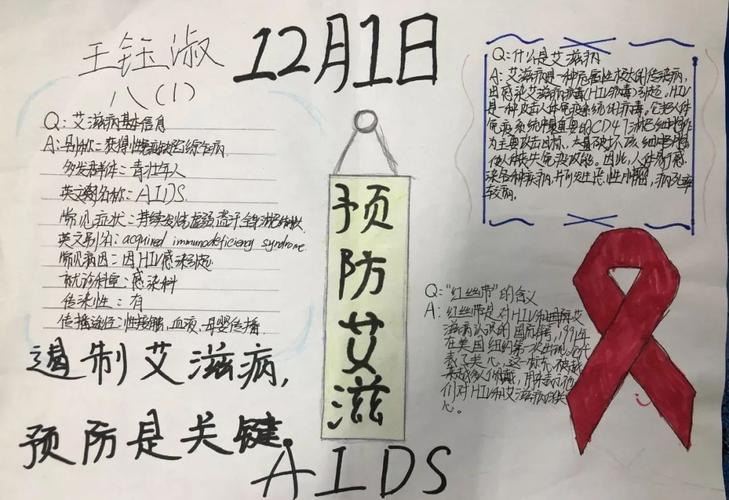 12月1日
王钰淑
八(1)
Q:艾滋病基本信息
A:别称:获得性免疫缺陷综合病
多发群体:青壮年人
英文名称:AIDS
常见症状:持续发烧 虚弱 盗汗 全身淋巴
英文别名:acquired immunodeficieng syndrome
常见病因:因HIV感染引起
就诊科室:感染科
传染性:有
传播途径:性接触,血液,母婴传播
遏制艾滋病,
预防是关键
AIDS
预防艾滋
Q:什么是艾滋病
A:艾滋病是一种危害性极大的传染病,
由感染艾滋病病毒(HIV病毒)引起,HIV
是一种攻击人体免疫系统的病毒。它把人体
免疫系统中最重要的CD4T淋巴细胞作
为主要攻击目标,大量破坏该细胞
使人体丧失免疫功能。因此,人体易感
染各种疾病,并可发生恶性肿瘤,病死率
较高。
Q:“红丝带”的含义
A:红丝带是对HIV和
艾滋病认识的国际 1991年
在美国纽约第一次 它代
表了关心,这一
们对HIV和艾滋病的关
心。